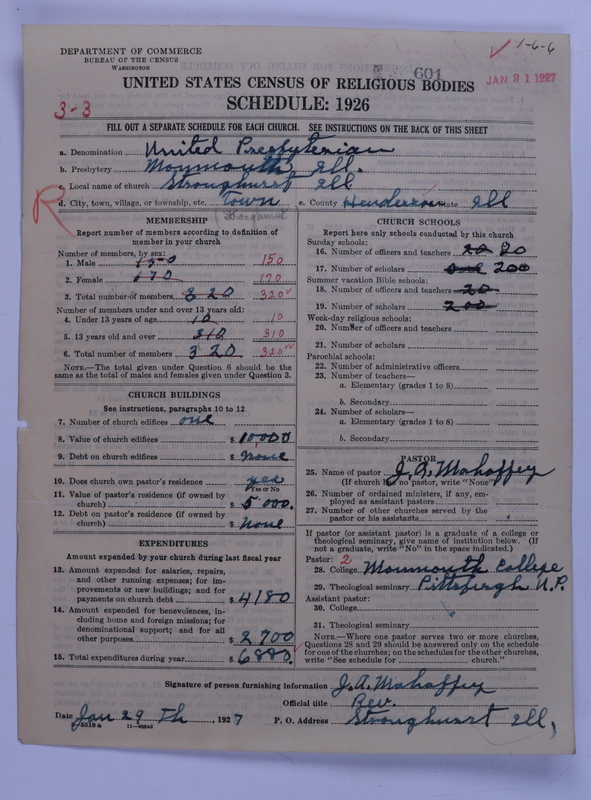 1-6-6
DEPARTMENT OF COMMERCE
BUREAU OF THE CENSUS
WASHINGTON
601
JAN 31 1927
UNITED STATES CENSUS OF RELIGIOUS BODIES
3-3
SCHEDULE: 1926
FILL OUT A SEPARATE SCHEDULE FOR EACH CHURCH. SEE INSTRUCTIONS ON THE BACK OF THIS SHEET
a. Denomination United Presbyterian
b. Presbytery Monmouth, Ill.
c. Local name of church Stronghurst Ill
d. City, town, village, or township, etc. Town e. County Henderson State Ill
R
(Stronghurst
MEMBERSHIP
Report number of members according to definition of
member in your church
Number of members, by sex:
1. Male 150 150
2. Female 170 170
3. Total number of members 320 320
Number of members under and over 13 years old:
4. Under 13 years of age 10 10
5. 13 years old and over 310 310
6. Total number of members 320 320
NOTE.—The total given under Question 6 should be the
same as the total of males and females given under Question 3.
CHURCH BUILDINGS
See instructions, paragraphs 10 to 12
7. Number of church edifices one
8. Value of church edifices $ 10,000
9. Debt on church edifices $ None
10. Does church own pastor's residence yes
Yes or No
11. Value of pastor's residence (if owned by
church) $ 5000.
12. Debt on pastor's residence (if owned by
church) $ None
EXPENDITURES
Amount expended by your church during last fiscal year
13. Amount expended for salaries, repairs,
and other running expenses; for im-
provements or new buildings; and for
payments on church debt $ 4180
14. Amount expended for benevolences, in-
cluding home and foreign missions; for
denominational support; and for all
other purposes $ 2700
15. Total expenditures during year $ 6880.
CHURCH SCHOOLS
Report here only schools conducted by this church
Sunday schools:
16. Number of officers and teachers 20 20
17. Number of scholars 200
Summer vacation Bible schools:
18. Number of officers and teachers 20
19. Number of scholars 200
Week-day religious schools:
20. Number of officers and teachers
21. Number of scholars
Parochial schools:
22. Number of administrative officers
23. Number of teachers—
a. Elementary (grades 1 to 8)
b. Secondary
24. Number of scholars—
a. Elementary (grades 1 to 8)
b. Secondary
PASTOR
25. Name of pastor J. A. Mahaffey
(If church has no pastor, write "None")
26. Number of ordained ministers, if any, em-
ployed as assistant pastors
27. Number of other churches served by the
pastor or his assistants
If pastor (or assistant pastor) is a graduate of a college or
theological seminary, give name of institution below. (If
not a graduate, write "No" in the space indicated.)
Pastor: 2
28. College Monmouth College
29. Theological seminary Pittsburgh U.P.
Assistant pastor:
30. College
31. Theological seminary
NOTE.—Where one pastor serves two or more churches,
Questions 28 and 29 should be answered only on the schedule
for one of the churches; on the schedules for the other churches,
write "See schedule for church."
Signature of person furnishing information J. A. Mahaffey
Official title Rev.
Date Jan 29 Th, 1927 P. O. Address Stronghurst Ill,